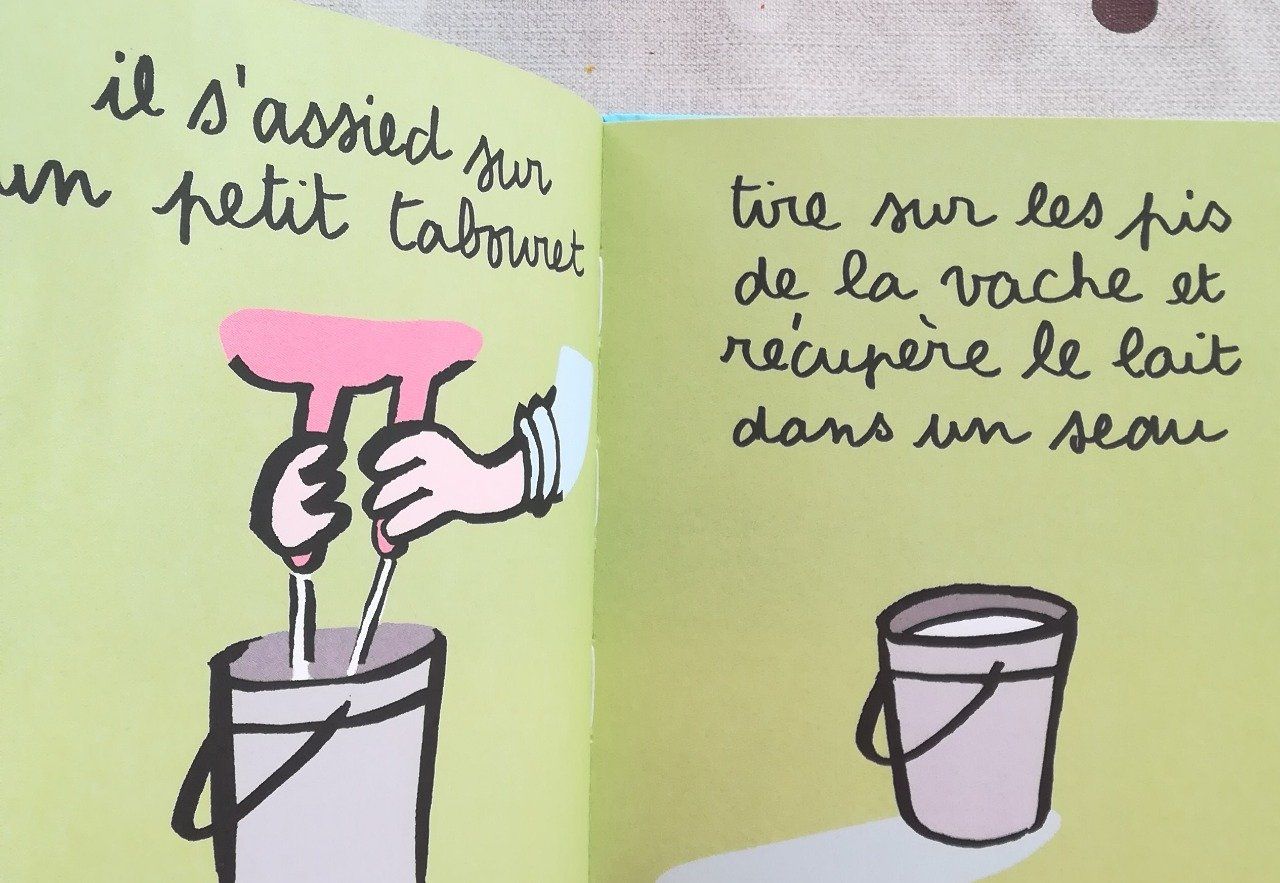 il s'assied sur
un petit tabouret
tire sur les pis
de la vache et
récupère le lait
dans un seau